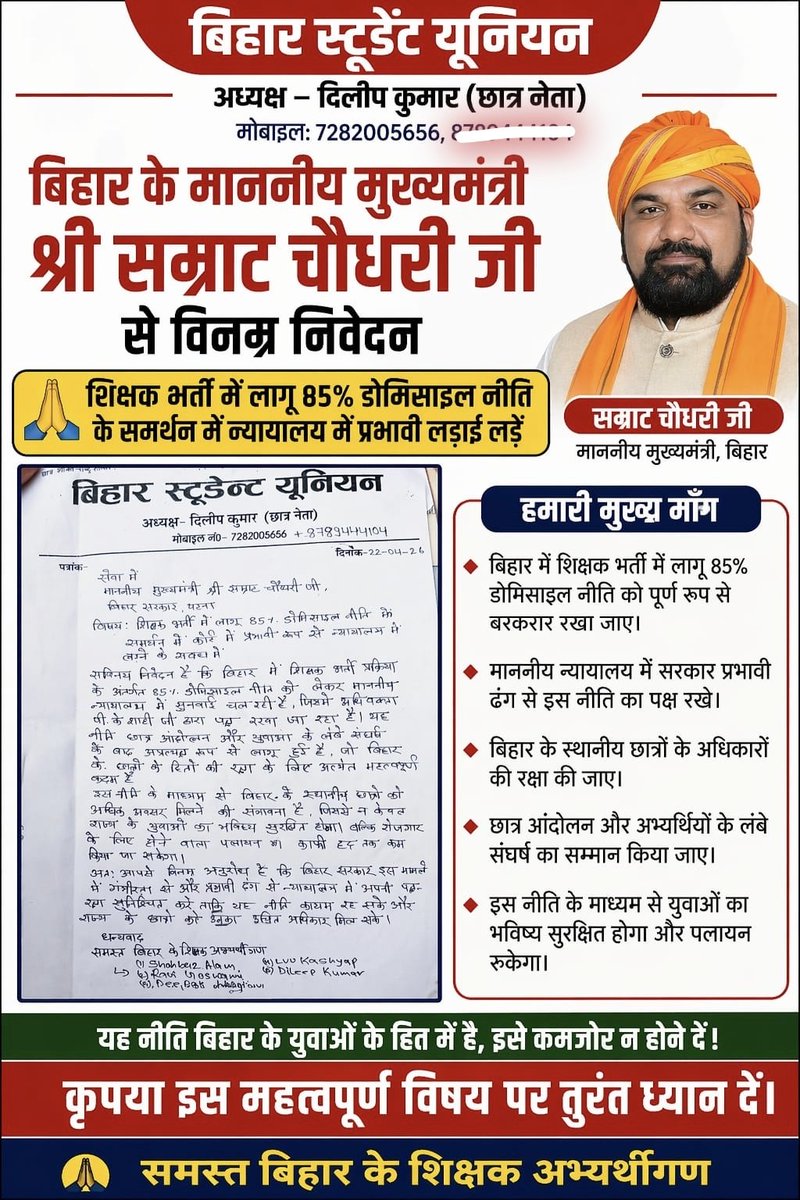 बिहार स्टूडेंट यूनियन
अध्यक्ष – दिलीप कुमार (छात्र नेता)
मोबाइल: 7282005656,
बिहार के माननीय मुख्यमंत्री
श्री सम्राट चौधरी जी
से विनम्र निवेदन
शिक्षक भर्ती में लागू 85% डोमिसाइल नीति
के समर्थन में न्यायालय में प्रभावी लड़ाई लड़ें
सम्राट चौधरी जी
माननीय मुख्यमंत्री, बिहार
बिहार स्टूडेन्ट यूनियन
अध्यक्ष- दिलीप कुमार (छात्र नेता)
मोबाइल नं0- 7282005656 + 8789444104
पत्रांक-
दिनांक-22-04-26
सेवा में
माननीय मुख्यमंत्री श्री सम्राट चौधरी जी,
बिहार सरकार, पटना
विषय: शिक्षक भर्ती में लागू 85% डोमिसाइल नीति के
समर्थन में कोर्ट में प्रभावी रूप से न्यायालय में
लड़ने के संबंध में
सविनय निवेदन है कि बिहार में शिक्षक भर्ती प्रक्रिया
के अंतर्गत 85% डोमिसाइल नीति को लेकर माननीय
न्यायालय में सुनवाई चल रही है, जिसमें अधिवक्ता
पी. के शाही जी द्वारा पक्ष रखा जा रहा है। यह
नीति छात्र आंदोलन और युवाओं के लंबे संघर्ष
के बाद अप्रत्यक्ष रूप से लागू हुई है, जो बिहार
के छात्रों के हितों की रक्षा के लिए अत्यंत महत्वपूर्ण
कदम है
इस नीति के माध्यम से बिहार के स्थानीय छात्रों को
अधिक अवसर मिलने की संभावना है, जिससे न केवल
राज्य के युवाओं का भविष्य सुरक्षित होगा बल्कि रोजगार
के लिए होने वाला पलायन भी काफी हद तक कम
किया जा सकेगा।
अतः आपसे विनम्र अनुरोध है कि बिहार सरकार इस मामले
में गंभीरता से और प्रभावी ढंग से न्यायालय में अपनी पक्ष-
रखना सुनिश्चित करें ताकि यह नीति कायम रह सके और
राज्य के छात्रों को उनका उचित अधिकार मिल सके।
धन्यवाद
समस्त बिहार के शिक्षक अभ्यर्थीगण
Shahbaz Alam
LUV Kashyap
Ravi Goswami
Dileep Kumar
हमारी मुख्य माँग
बिहार में शिक्षक भर्ती में लागू 85%
डोमिसाइल नीति को पूर्ण रूप से
बरकरार रखा जाए।
माननीय न्यायालय में सरकार प्रभावी
ढंग से इस नीति का पक्ष रखे।
बिहार के स्थानीय छात्रों के अधिकारों
की रक्षा की जाए।
छात्र आंदोलन और अभ्यर्थियों के लंबे
संघर्ष का सम्मान किया जाए।
इस नीति के माध्यम से युवाओं का
भविष्य सुरक्षित होगा और पलायन
रुकेगा।
यह नीति बिहार के युवाओं के हित में है, इसे कमजोर न होने दें!
कृपया इस महत्वपूर्ण विषय पर तुरंत ध्यान दें।
समस्त बिहार के शिक्षक अभ्यर्थीगण